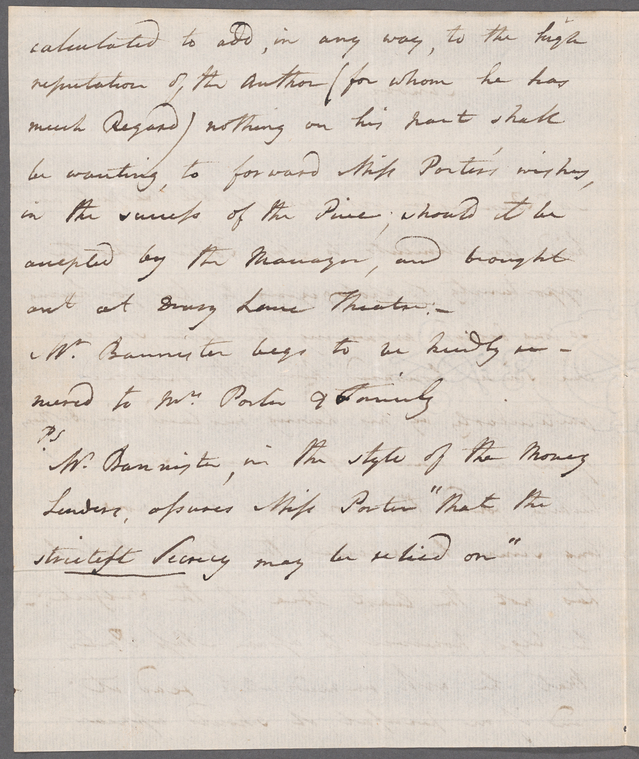 calculated to add, in any way, to the high
reputation of the Author (for whom he has
much Regard) nothing on his part shall
be wanting, to forward Miss Porter's wishes,
in the success of the Piece; should it be
accepted by the Manager, and brought
out at Drury Lane Theatre:-
Mr. Bannister begs to be kindly re-
mered to Mrs Porter & Family
PS
Mr. Bannister, in the style of the Money
Lenders, assures Miss Porter "that the
strictest Secrecy may be relied on"